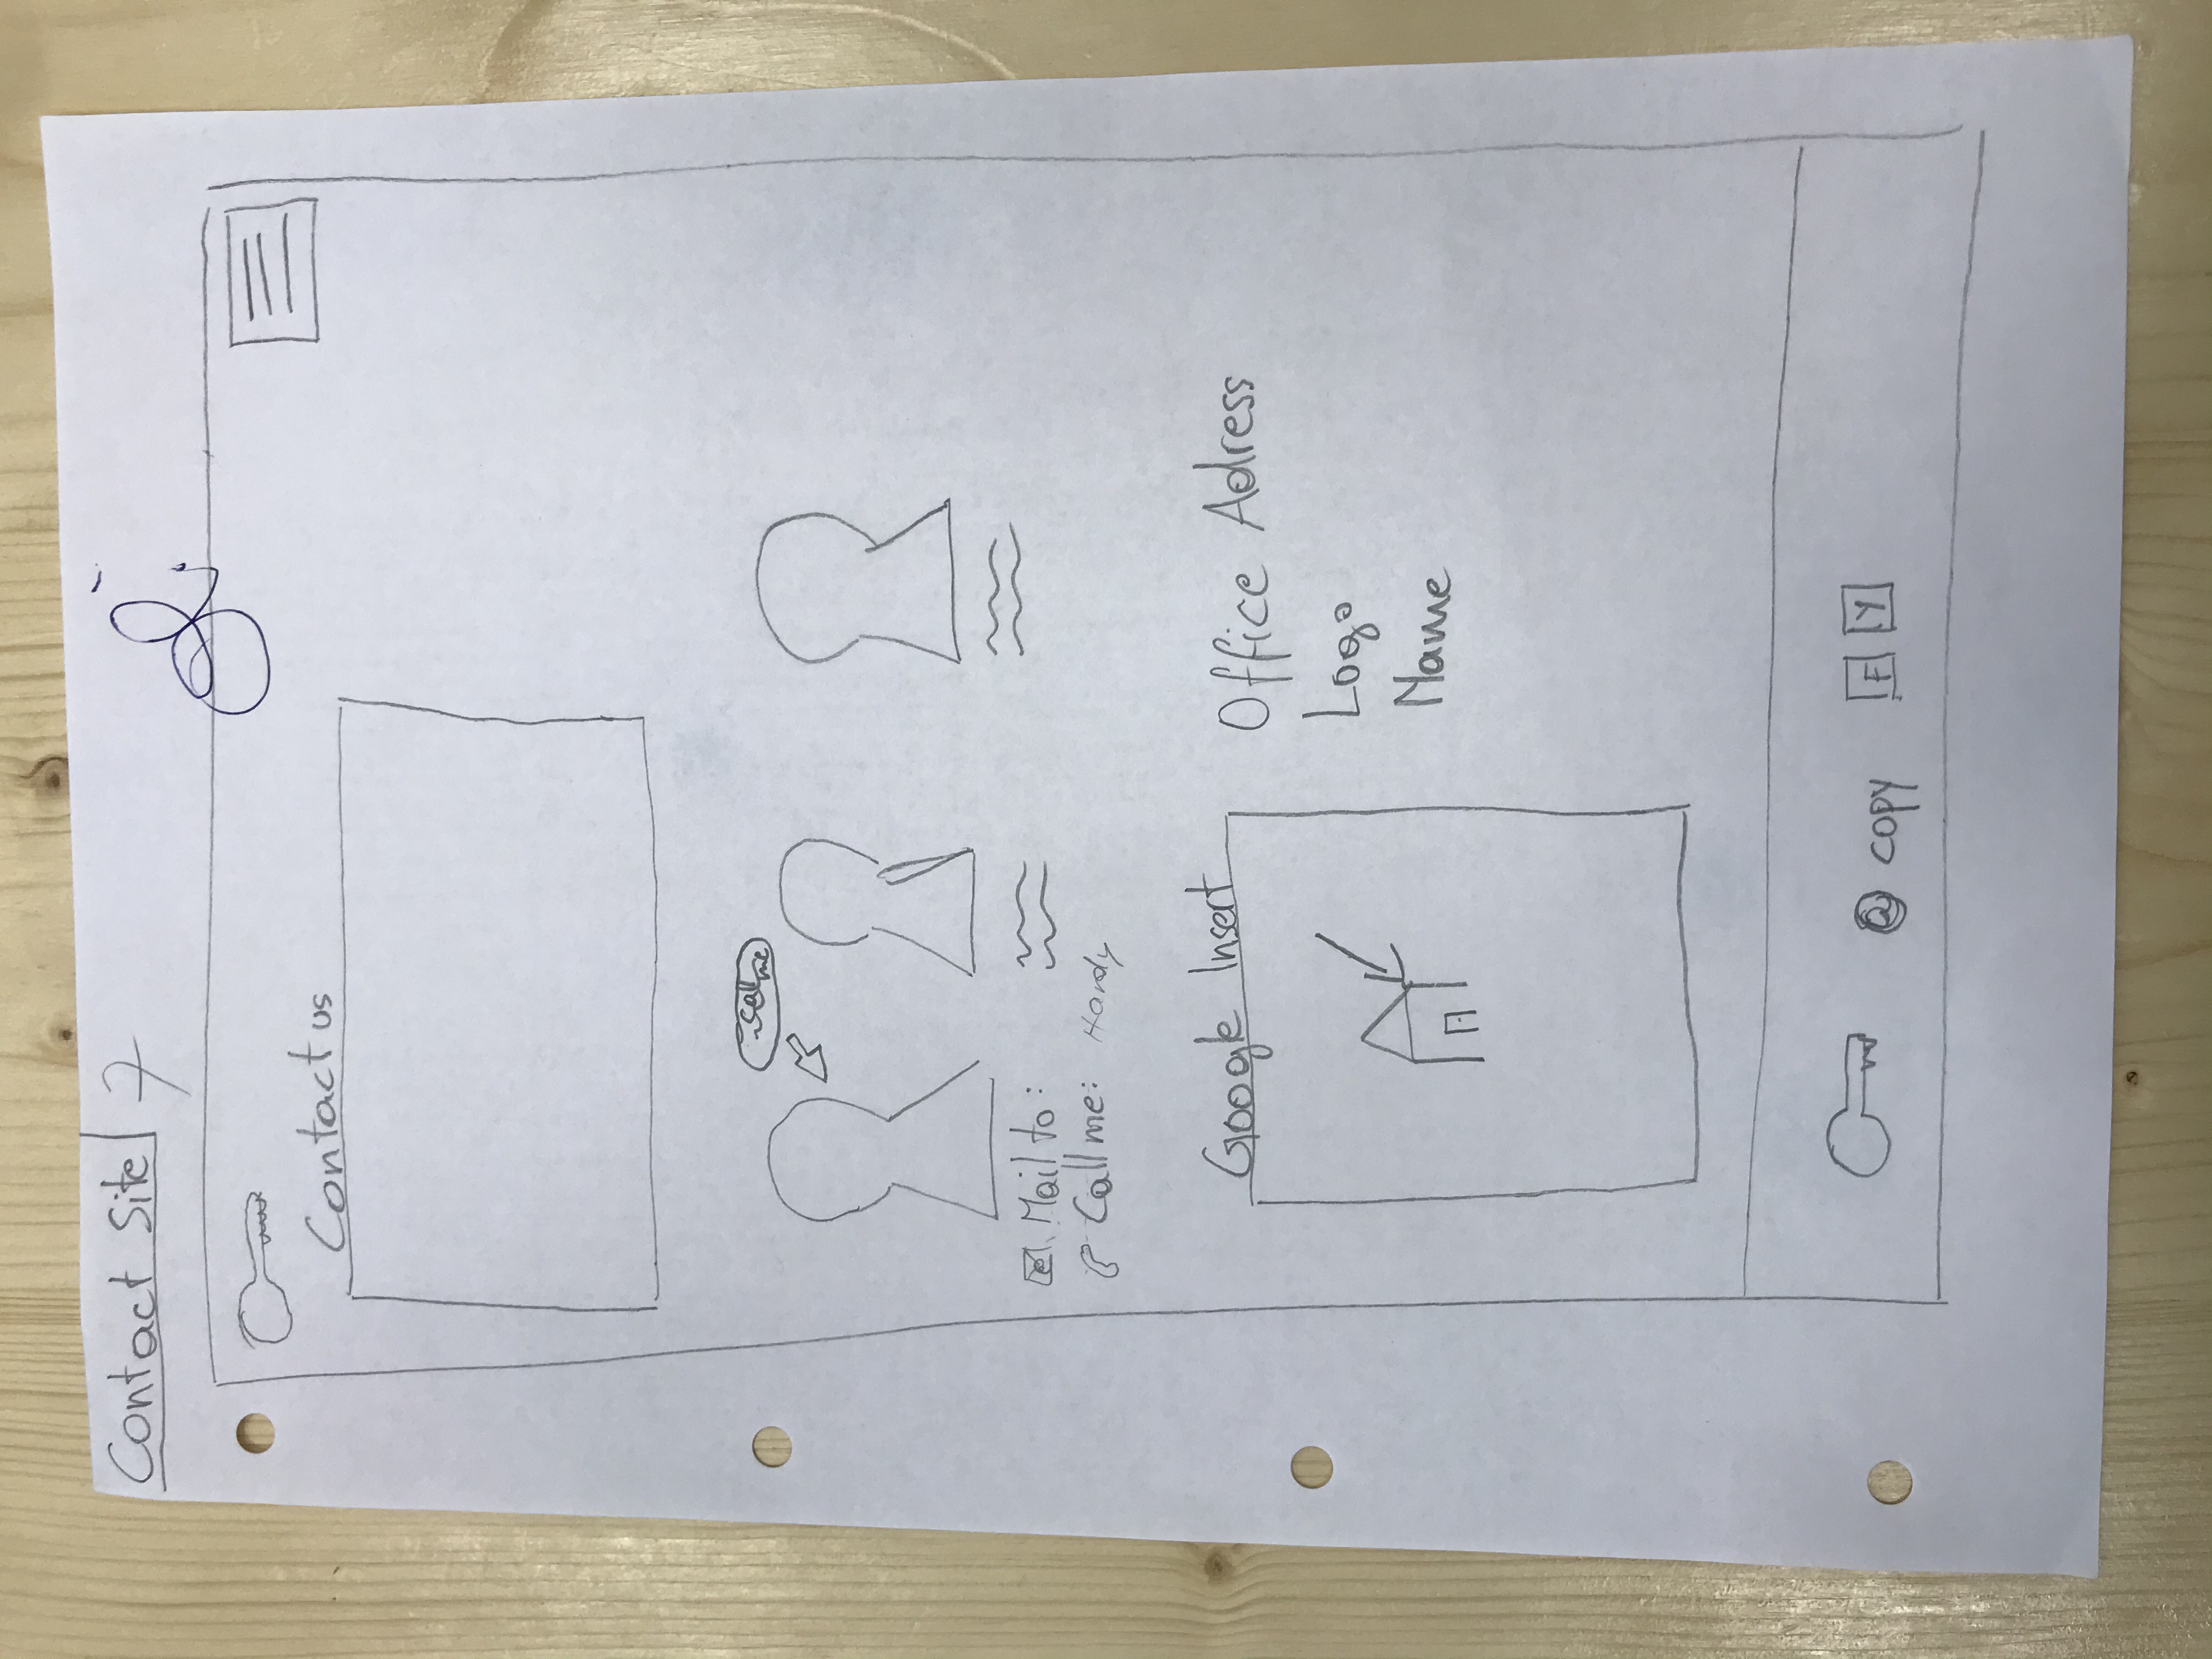 Contact Site 7
Contact us
call me
Mail to:
Call me: Handy
Google Insert
Office Adress
Logo
Name
@ copy F Y